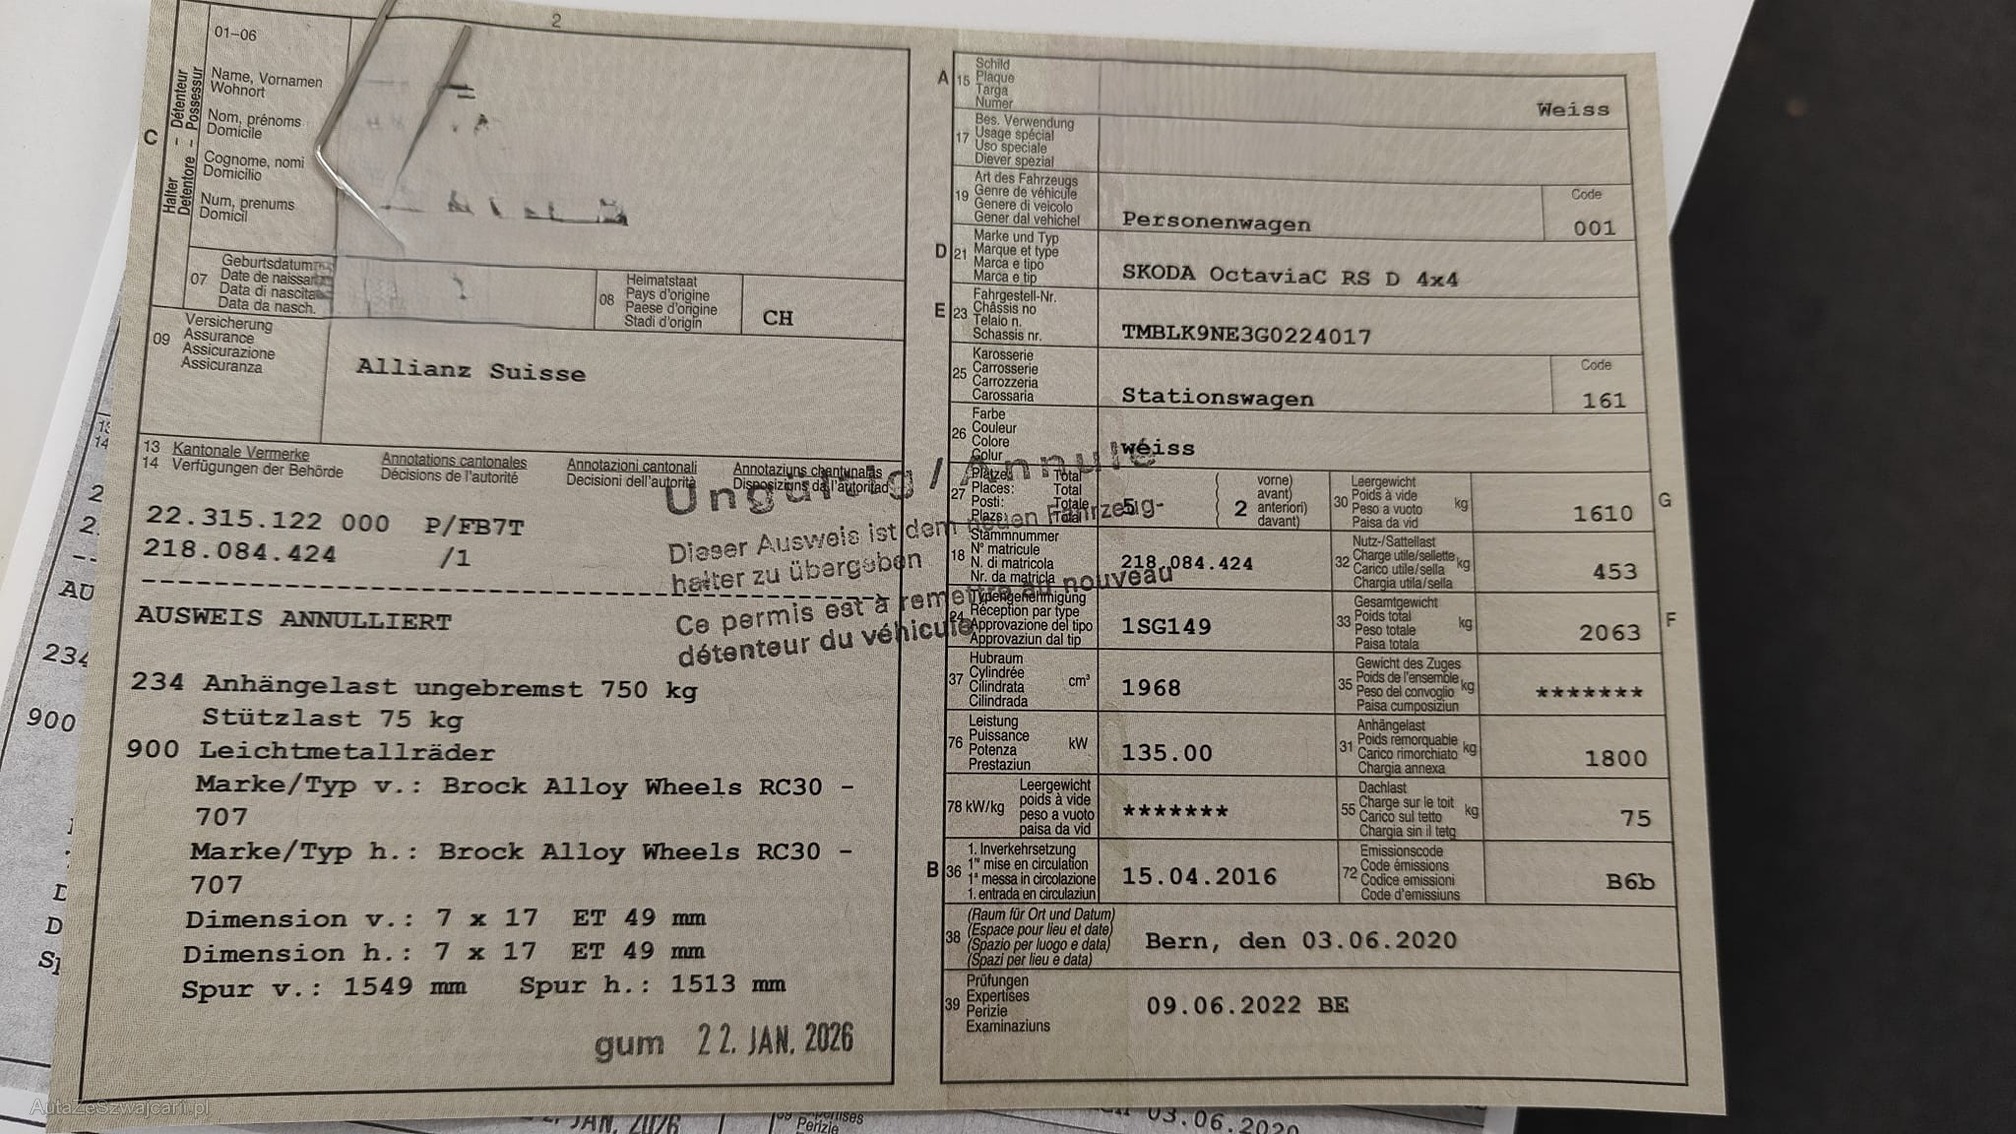 2
01-06
Name, Vornamen
Wohnort
Nom, prénoms
Domicile
Cognome, nomi
Domicilio
Num, prenums
Domicil
C
Halter – Détenteur
Detentore – Possessur
07
Geburtsdatum
Date de naissan
Data di nascita
Data da nasch.
08
Heimatstaat
Pays d'origine
Paese d'origine
Stadi d'origin
CH
09
Versicherung
Assurance
Assicurazione
Assicuranza
Allianz Suisse
13 Kantonale Vermerke
14 Verfügungen der Behörde
Annotations cantonales
Décisions de l'autorité
Annotazioni cantonali
Decisioni dell'autorità
Annotaziuns chantunalas
Disposiziuns da l'autoritad
22.315.122 000 P/FB7T
218.084.424 /1
AUSWEIS ANNULLIERT
Ungültig / Annulé
Dieser Ausweis ist dem neuen Fahrzeug-
halter zu übergeben
Ce permis est à remettre au nouveau
détenteur du véhicule
234 Anhängelast ungebremst 750 kg
Stützlast 75 kg
900 Leichtmetallräder
Marke/Typ v.: Brock Alloy Wheels RC30 -
707
Marke/Typ h.: Brock Alloy Wheels RC30 -
707
Dimension v.: 7 x 17 ET 49 mm
Dimension h.: 7 x 17 ET 49 mm
Spur v.: 1549 mm Spur h.: 1513 mm
gum 22. JAN. 2026
A 15
Schild
Plaque
Targa
Numer
Weiss
17
Bes. Verwendung
Usage spécial
Uso speciale
Diever spezial
19
Art des Fahrzeugs
Genre de véhicule
Genere di veicolo
Gener dal vehichel
Personenwagen
Code
001
D 21
Marke und Typ
Marque et type
Marca e tipo
Marca e tip
SKODA OctaviaC RS D 4x4
E 23
Fahrgestell-Nr.
Châssis no
Telaio n.
Schassis nr.
TMBLK9NE3G0224017
25
Karosserie
Carrosserie
Carrozzeria
Carossaria
Stationswagen
Code
161
26
Farbe
Couleur
Colore
Colur
weiss
27
Plätze: Total
Places: Total
Posti: Totale
Plazs: Total
5
2
vorne)
avant)
anteriori)
davant)
30
Leergewicht
Poids à vide
Peso a vuoto
Paisa da vid
kg
1610
G
18
Stammnummer
N° matricule
N. di matricola
Nr. da matricla
218.084.424
32
Nutz-/Sattellast
Charge utile/sellette
Carico utile/sella
Chargia utila/sella
kg
453
24
Typengenehmigung
Réception par type
Approvazione del tipo
Approvaziun dal tip
1SG149
33
Gesamtgewicht
Poids total
Peso totale
Paisa totala
kg
2063
F
37
Hubraum
Cylindrée
Cilindrata
Cilindrada
cm³
1968
35
Gewicht des Zuges
Poids de l'ensemble
Peso del convoglio
Paisa cumposiziun
kg
*******
76
Leistung
Puissance
Potenza
Prestaziun
kW
135.00
31
Anhängelast
Poids remorquable
Carico rimorchiato
Chargia annexa
kg
1800
78 kW/kg
Leergewicht
poids à vide
peso a vuoto
paisa da vid
*******
55
Dachlast
Charge sur le toit
Carico sul tetto
Chargia sin il tetg
kg
75
B 36
1. Inverkehrsetzung
1re mise en circulation
1a messa in circolazione
1. entrada en circulaziun
15.04.2016
72
Emissionscode
Code émissions
Codice emissioni
Code d'emissiuns
B6b
38
(Raum für Ort und Datum)
(Espace pour lieu et date)
(Spazio per luogo e data)
(Spazi per lieu e data)
Bern, den 03.06.2020
39
Prüfungen
Expertises
Perizie
Examinaziuns
09.06.2022 BE
14
2
2.
AU
234
900
D
D
AutaZeSzwajcarii.pl
JAN. 2026
Perizie
03.06.2020